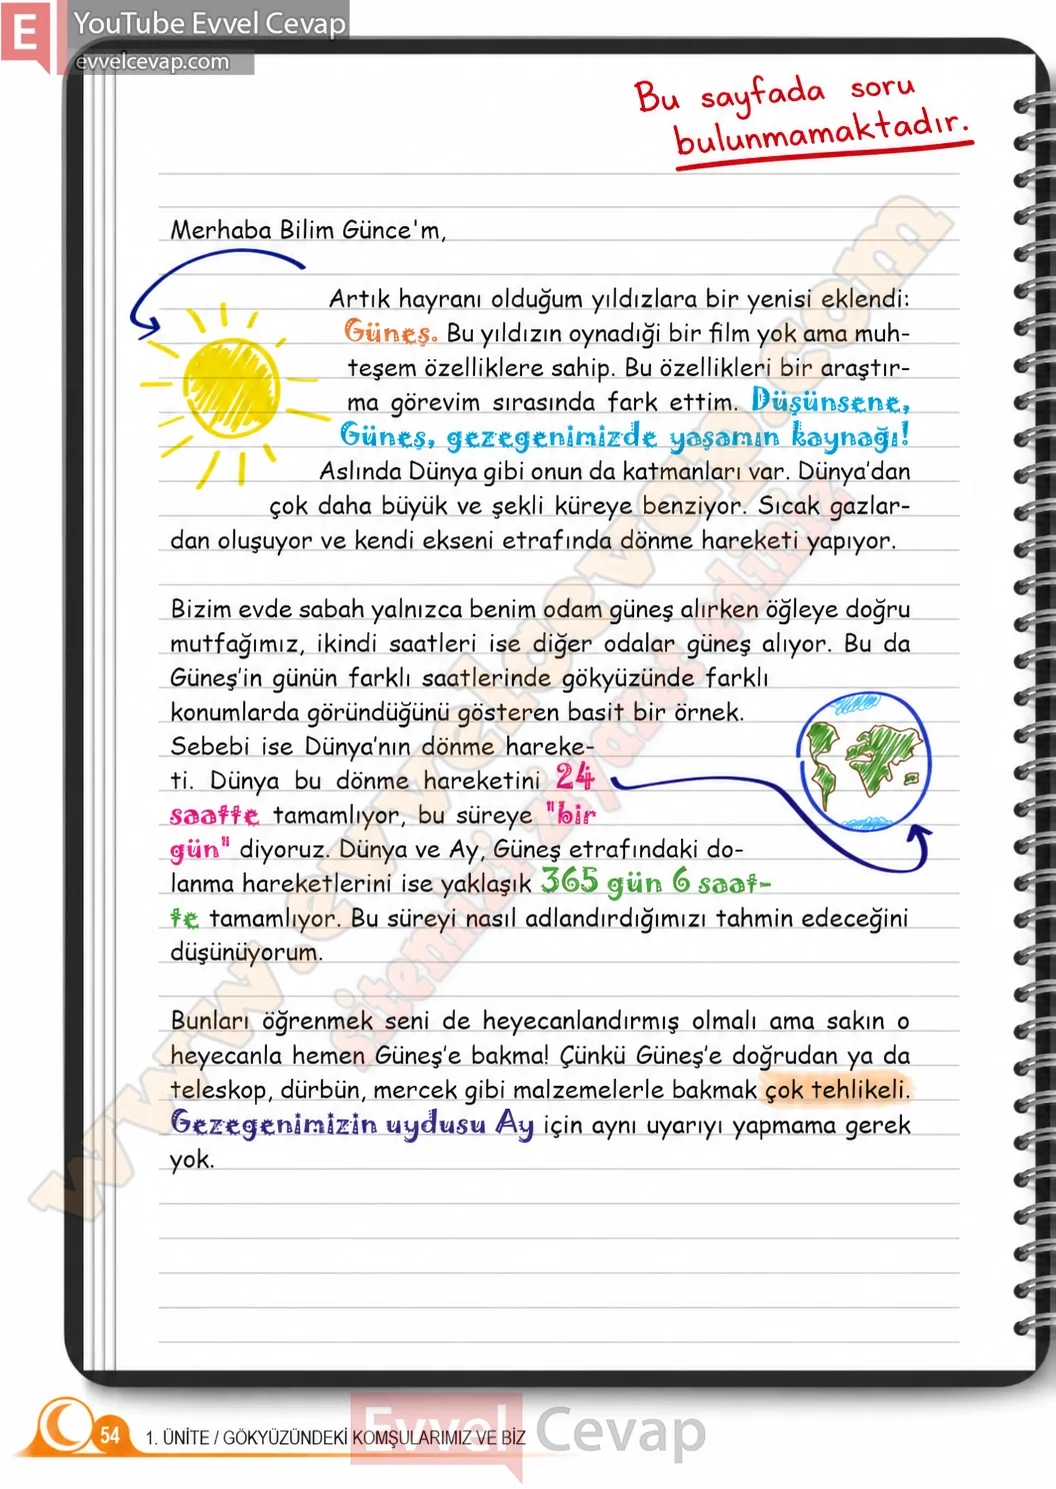 E
YouTube Evvel Cevap
evvelcevap.com
Bu sayfada soru
bulunmamaktadır.
Merhaba Bilim Günce'm,
Artık hayranı olduğum yıldızlara bir yenisi eklendi:
Güneş. Bu yıldızın oynadığı bir film yok ama muh-
teşem özelliklere sahip. Bu özellikleri bir araştır-
ma görevim sırasında fark ettim. Düşünsene,
Güneş, gezegenimizde yaşamın kaynağı!
Aslında Dünya gibi onun da katmanları var. Dünya'dan
çok daha büyük ve şekli küreye benziyor. Sıcak gazlar-
dan oluşuyor ve kendi ekseni etrafında dönme hareketi yapıyor.
Bizim evde sabah yalnızca benim odam güneş alırken öğleye doğru
mutfağımız, ikindi saatleri ise diğer odalar güneş alıyor. Bu da
Güneş'in günün farklı saatlerinde gökyüzünde farklı
konumlarda göründüğünü gösteren basit bir örnek.
Sebebi ise Dünya'nın dönme hareke-
ti. Dünya bu dönme hareketini 24
saatte tamamlıyor, bu süreye "bir
gün" diyoruz. Dünya ve Ay, Güneş etrafındaki do-
lanma hareketlerini ise yaklaşık 365 gün 6 saat-
te tamamlıyor. Bu süreyi nasıl adlandırdığımızı tahmin edeceğini
düşünüyorum.
Bunları öğrenmek seni de heyecanlandırmış olmalı ama sakın o
heyecanla hemen Güneş'e bakma! Çünkü Güneş'e doğrudan ya da
teleskop, dürbün, mercek gibi malzemelerle bakmak çok tehlikeli.
Gezegenimizin uydusu Ay için aynı uyarıyı yapmama gerek
yok.
www.evvelcevap.com
sitemizi ziyaret ediniz
54
1. ÜNİTE / GÖKYÜZÜNDEKİ KOMŞULARIMIZ VE BİZ
Evvel Cevap